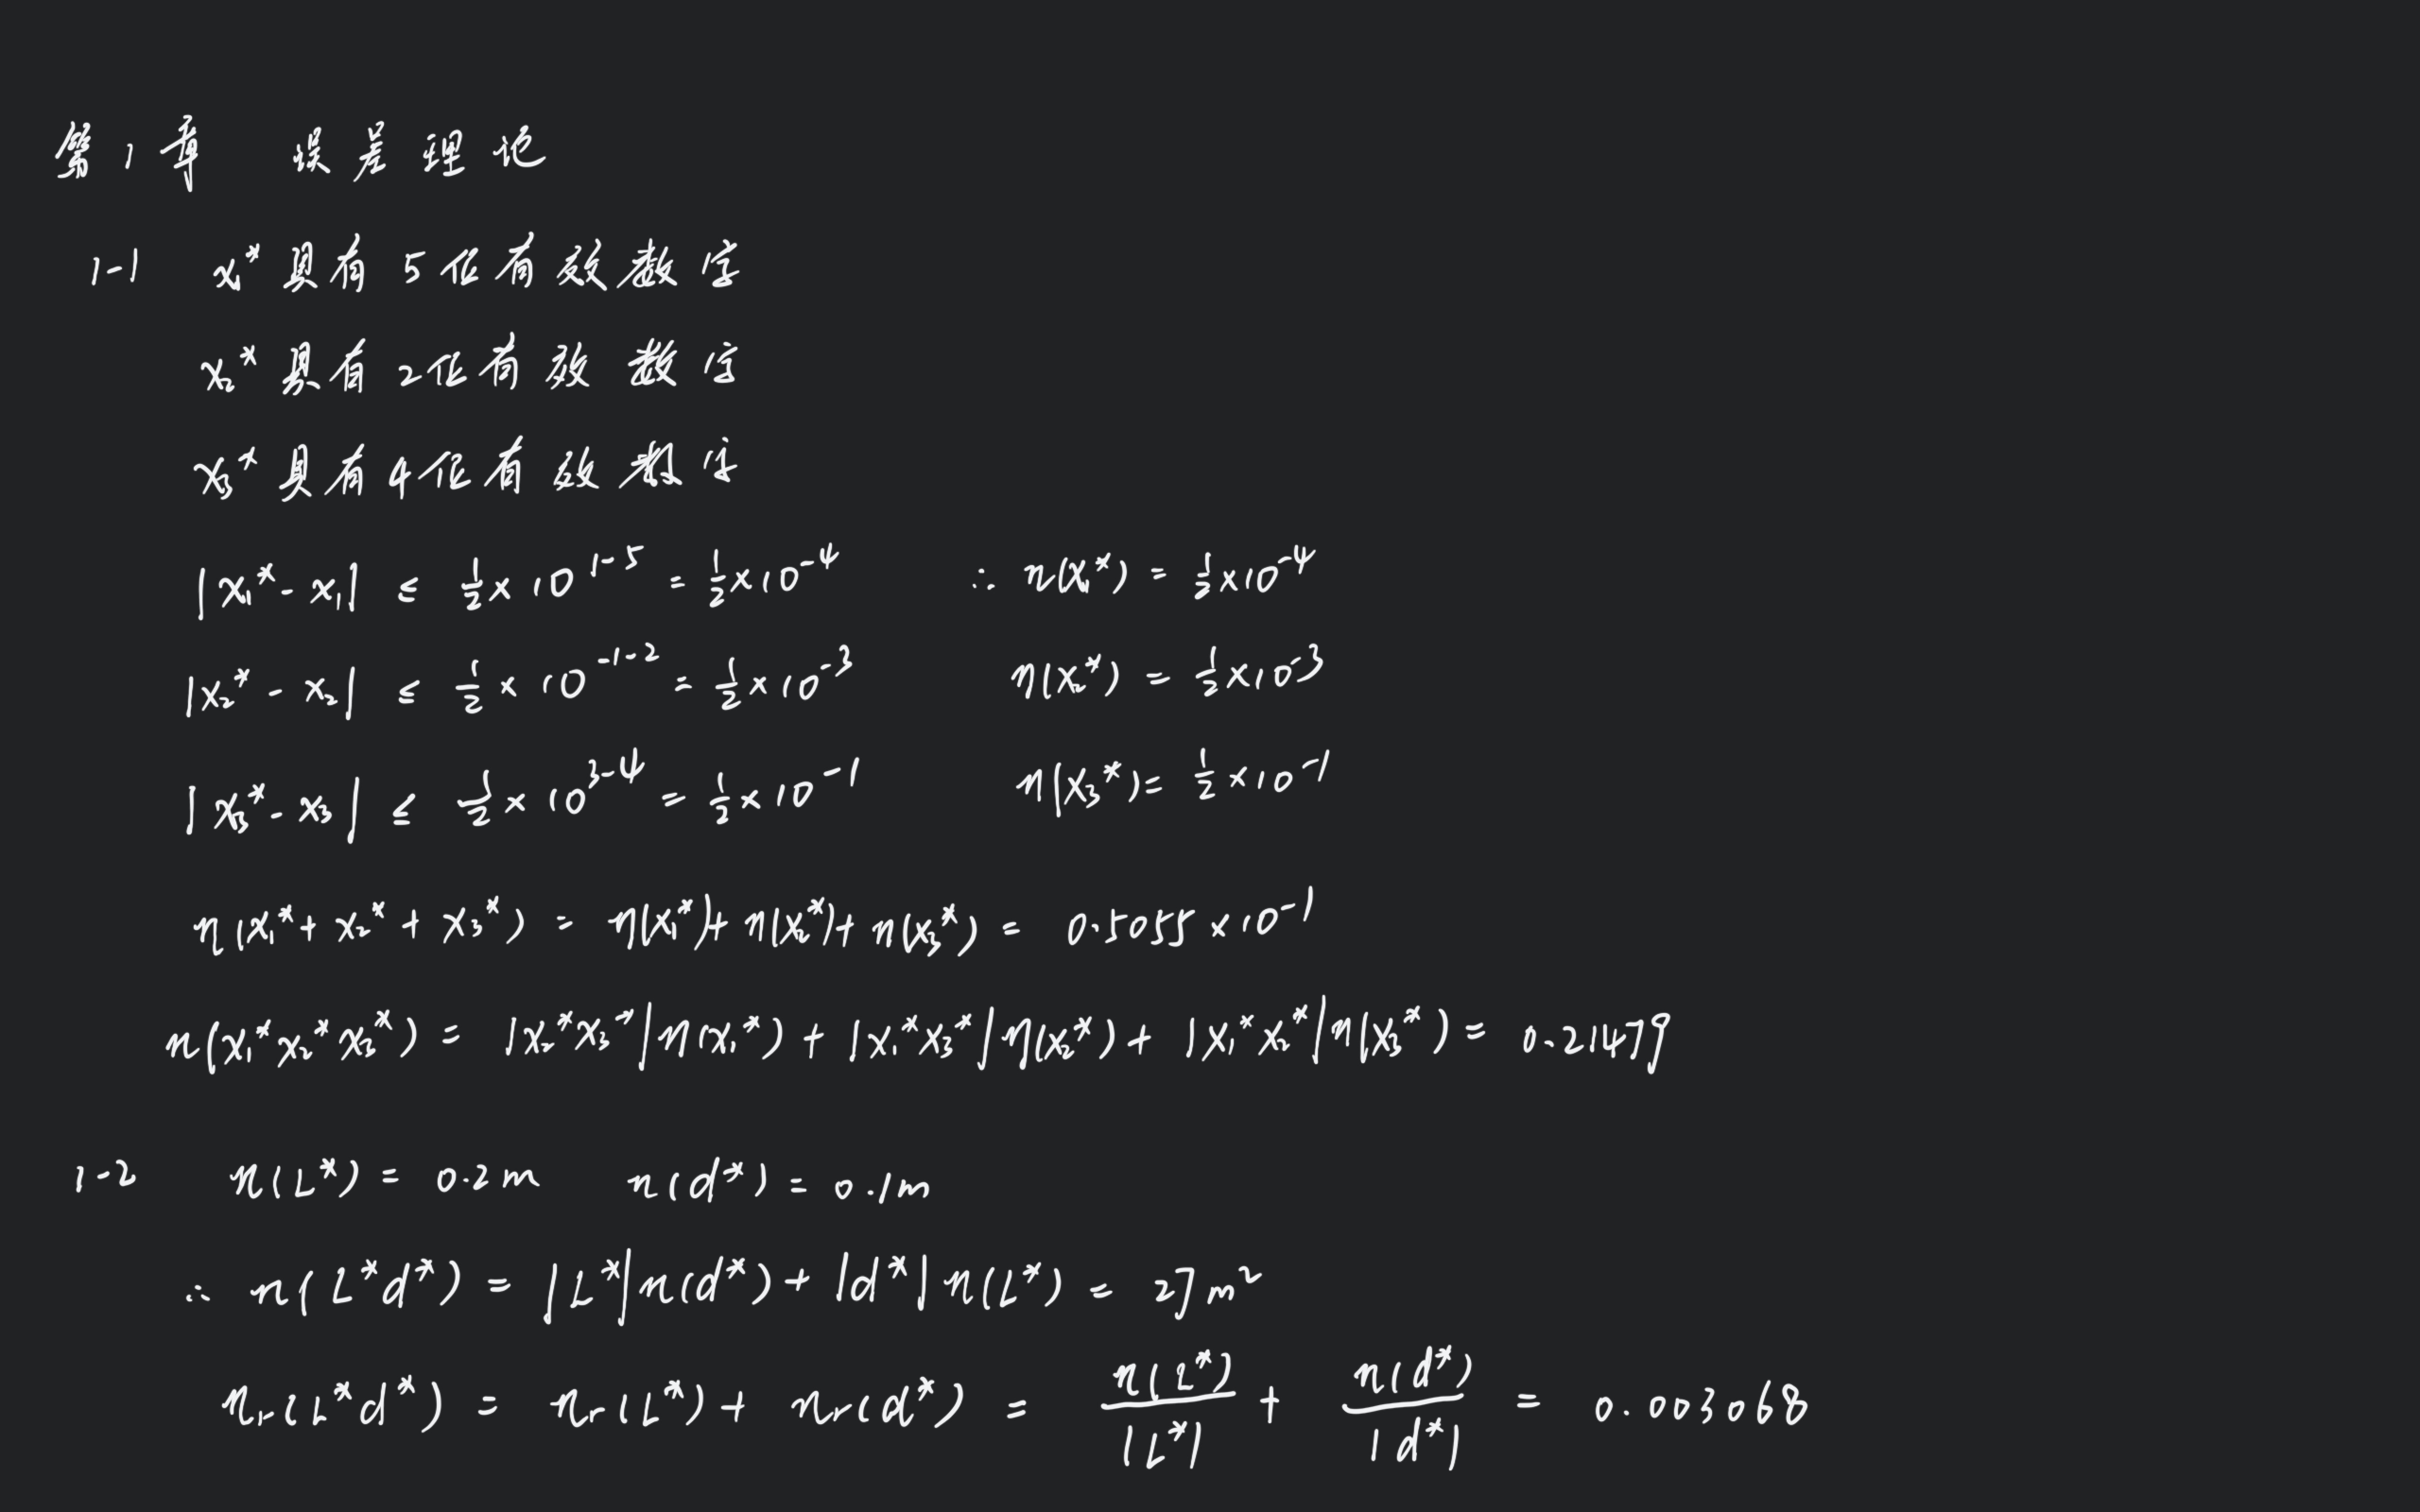 第1章 误差理论
1-1 x₁* 具有5位有效数字
x₂* 具有2位有效数字
x₃* 具有4位有效数字
|x₁* - x₁| ≤ ½ × 10¹⁻⁵ = ½ × 10⁻⁴ ∴ η(x₁*) = ½ × 10⁻⁴
|x₂* - x₂| ≤ ½ × 10⁻¹⁻² = ½ × 10⁻³ η(x₂*) = ½ × 10⁻³
|x₃* - x₃| ≤ ½ × 10³⁻⁴ = ½ × 10⁻¹ η(x₃*) = ½ × 10⁻¹
η(x₁* + x₂* + x₃*) = η(x₁*) + η(x₂*) + η(x₃*) = 0.5055 × 10⁻¹
η(x₁* x₂* x₃*) = |x₂* x₃*| η(x₁*) + |x₁* x₃*| η(x₂*) + |x₁* x₂*| η(x₃*) = 0.21479
1-2 η(L*) = 0.2m η(d*) = 0.1m
∴ η(L*d*) = |L*| η(d*) + |d*| η(L*) = 27m²
ηr(L*d*) = ηr(L*) + ηr(d*) = η(L*)/|L*| + η(d*)/|d*| = 0.003068